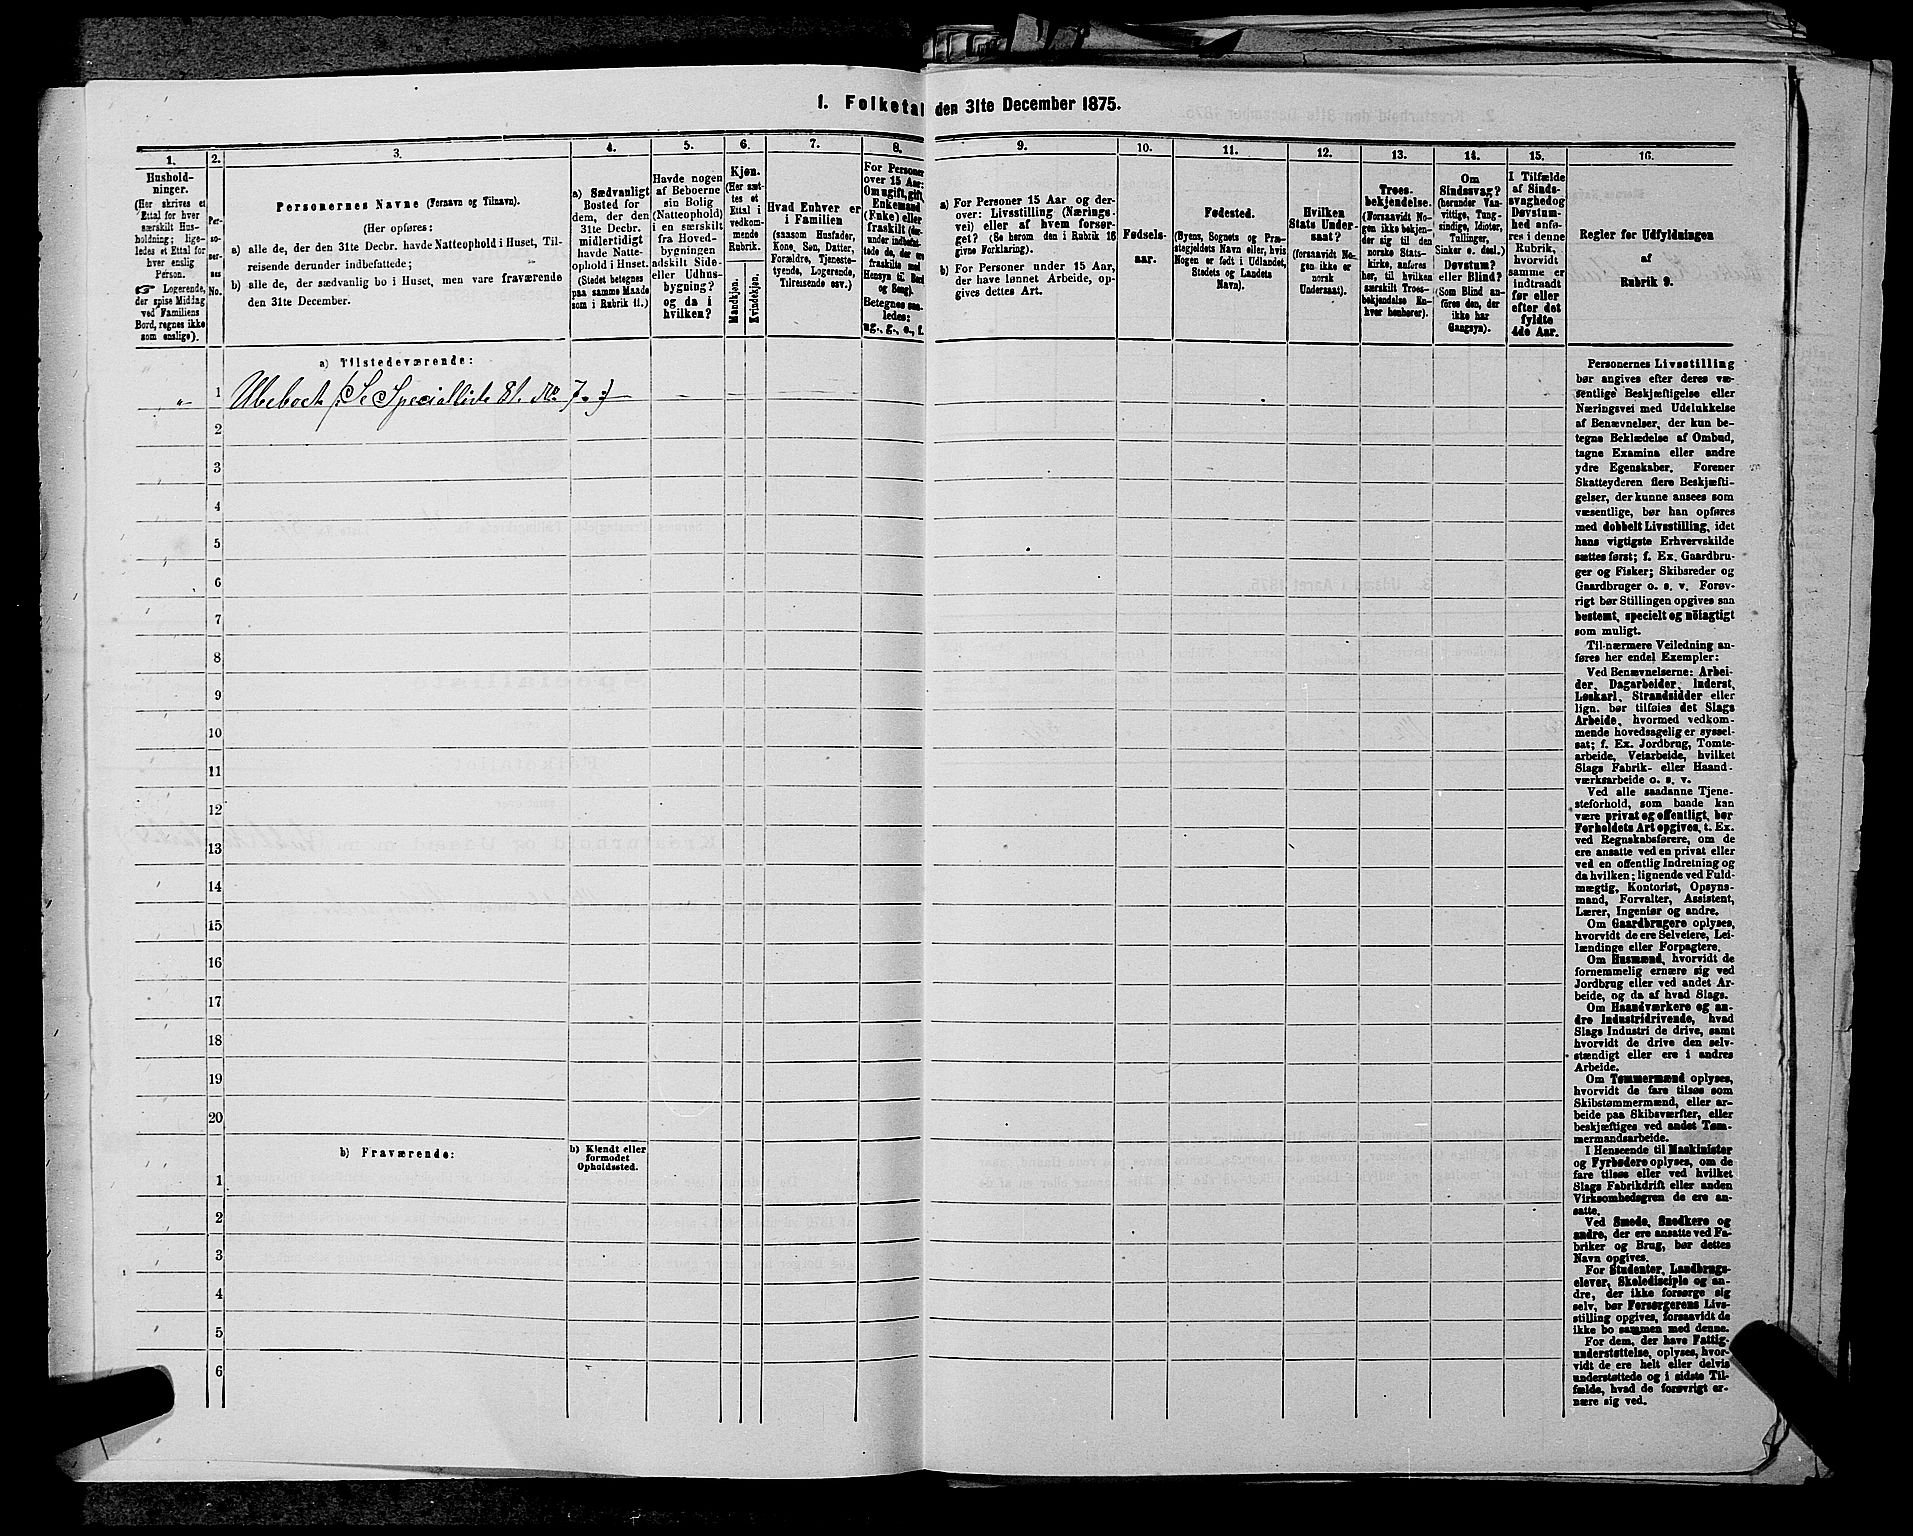 1. Folketal den 31te December 1875.
1.
Hushold-
ninger.
(Her skrives et
Ettal for hver
særskilt Hus-
holdning; lige-
ledes et Ettal for
hver enslig
Person.
☞ Logerende,
der spise Middag
ved Familiens
Bord, regnes ikke
som enslige).
2.
Per-
so-
ner-
nes
No.
3.
Personernes Navne (Fornavn og Tilnavn).
(Her opføres:
a) alle de, der den 31te Decbr. havde Natteophold i Huset, Til-
reisende derunder indbefattede;
b) alle de, der sædvanlig bo i Huset, men vare fraværende
den 31te December.
4.
a) Sædvanligt
Bosted for
dem, der den
31te Decbr.
midlertidigt
havde Natte-
ophold i Huset.
(Stedet betegnes
paa samme Maade
som i Rubrik 11.)
5.
Havde nogen
af Beboerne
sin Bolig
(Natteophold)
i en særskilt
fra Hoved-
bygningen
adskilt Side-
eller Udhus-
bygning?
og da i
hvilken?
6.
Kjøn.
(Her sæt-
tes et
Ettal i
vedkom-
mende
Rubrik.
Mandkjøn.
Kvindekjøn.
7.
Hvad Enhver er
i Familien
(saasom Husfader,
Kone, Søn, Datter,
Forældre, Tjeneste-
tyende, Logerende,
Tilreisende osv.)
8.
For Personer
over 15 Aar:
Om ugift, gift,
Enkemand
(Enke) eller
fraskilt (der-
under indbefat-
tede de, der ere
fraskilte med
Hensyn til Bord
og Seng).
Betegnes saa-
ledes:
ug., g., e., f.
9.
a) For Personer 15 Aar og der-
over: Livsstilling (Nærings-
vei) eller af hvem forsør-
get? (Se herom den i Rubrik 16
givne Forklaring).
b) For Personer under 15 Aar,
der have lønnet Arbeide, op-
gives dettes Art.
10.
Fødsels-
aar.
11.
Fødested.
(Byens, Sognets og Præ-
stegjeldets Navn eller, hvis
Nogen er født i Udlandet,
Stedets og Landets
Navn).
12.
Hvilken
Stats Under-
saat?
(forsaavidt No-
gen ikke er
norsk
Undersaat).
13.
Troes-
bekjendelse.
(Forsaavidt No-
gen ikke bekjen-
der sig til den
norske Stats-
kirke, anføres
her, til hvilken
særskilt Troes-
bekjendelse En-
hver henhører).
14.
Om
Sindssvag?
(herunder Van-
vittige, Tung-
sindige, Idioter,
Tullinger,
Sinker o. desl.)
Døvstum?
eller Blind?
(Som Blind an-
føres den, der
ikke har
Gangsyn).
15.
I Tilfælde
af Sinds-
svaghed og
Døvstum-
hed anfø-
res i denne
Rubrik,
hvorvidt
samme er
indtraadt
før eller
efter det
fyldte
4de Aar.
16.
Regler for Udfyldningen
af
Rubrik 9.
a) Tilstedeværende:
„ 1 Ubeboet /: Se Specialliste 81. No. 7. :/
2
3
4
5
6
7
8
9
10
11
12
13
14
15
16
17
18
19
20
b) Fraværende:
b) Kjendt eller
formodet
Opholdssted.
1
2
3
4
5
6
Personernes Livsstilling
bør angives efter deres væ-
sentlige Beskjæftigelse eller
Næringsvei med Udelukkelse
af Benævnelser, der kun be-
tegne Beklædelse af Ombud,
tagne Examina eller andre
ydre Egenskaber. Forener
Skatteyderen flere Beskjæfti-
gelser, der kunne ansees som
væsentlige, bør han opføres
med dobbelt Livsstilling, idet
hans vigtigste Erhvervskilde
sættes først; f. Ex. Gaardbru-
ger og Fisker; Skibsreder og
Gaardbruger o. s. v. Forøv-
rigt bør Stillingen opgives saa
bestemt, specielt og nöiagtigt
som muligt.
Til nærmere Veiledning an-
føres her endel Exempler:
Ved Benævnelserne: Arbei-
der, Dagarbeider, Inderst,
Løskarl, Strandsidder eller
lign. bør tilføies det Slags
Arbeide, hvormed vedkom-
mende hovedsagelig er syssel-
sat; f. Ex. Jordbrug, Tomte-
arbeide, Veiarbeide, hvilket
Slags Fabrik- eller Haand-
værksarbeide o. s. v.
Ved alle saadanne Tjene-
steforhold, som baade kan
være privat og offentligt, bør
Forholdets Art opgives, t. Ex.
ved Regnskabsførere, om de
ere ansatte ved en privat eller
ved en offentlig Indretning og
da hvilken; lignende ved Fuld-
mægtig, Kontorist, Opsyns-
mand, Forvalter, Assistent,
Lærer, Ingeniør og andre.
Om Gaardbrugere oplyses,
hvorvidt de ere Selveiere, Lei-
lændinge eller Forpagtere.
Om Husmænd, hvorvidt de
fornemmelig ernære sig ved
Jordbrug eller ved andet Ar-
beide, og da af hvad Slags.
Om Haandværkere og an-
dre Industridrivende, hvad
Slags Industri de drive, samt
hvorvidt de drive den selv-
stændigt eller ere i andres
Arbeide.
Om Tømmermænd oplyses,
hvorvidt de fare tilsøs som
Skibstømmermænd, eller ar-
beide paa Skibsværfter, eller
beskjæftiges ved andet Tøm-
mermandsarbeide.
I Henseende til Maskinister
og Fyrbødere oplyses, om de
fare tilsøs eller ved hvilket
Slags Fabrikdrift eller anden
Virksomhedsgren de ere an-
satte.
Ved Smede, Snedkere og
andre, der ere ansatte ved Fa-
briker og Brug, bør dettes
Navn opgives.
For Studenter, Landbrugs-
elever, Skoledisciple og an-
dre, der ikke forsørge sig
selv, bør Forsørgerens Livs-
stilling opgives, forsaavidt de
ikke bo sammen med denne.
For dem, der have Fattig-
understøttelse, oplyses, hvor-
vidt de ere helt eller delvis
understøttede og i sidste Til-
fælde, hvad de forøvrigt er-
nære sig ved.